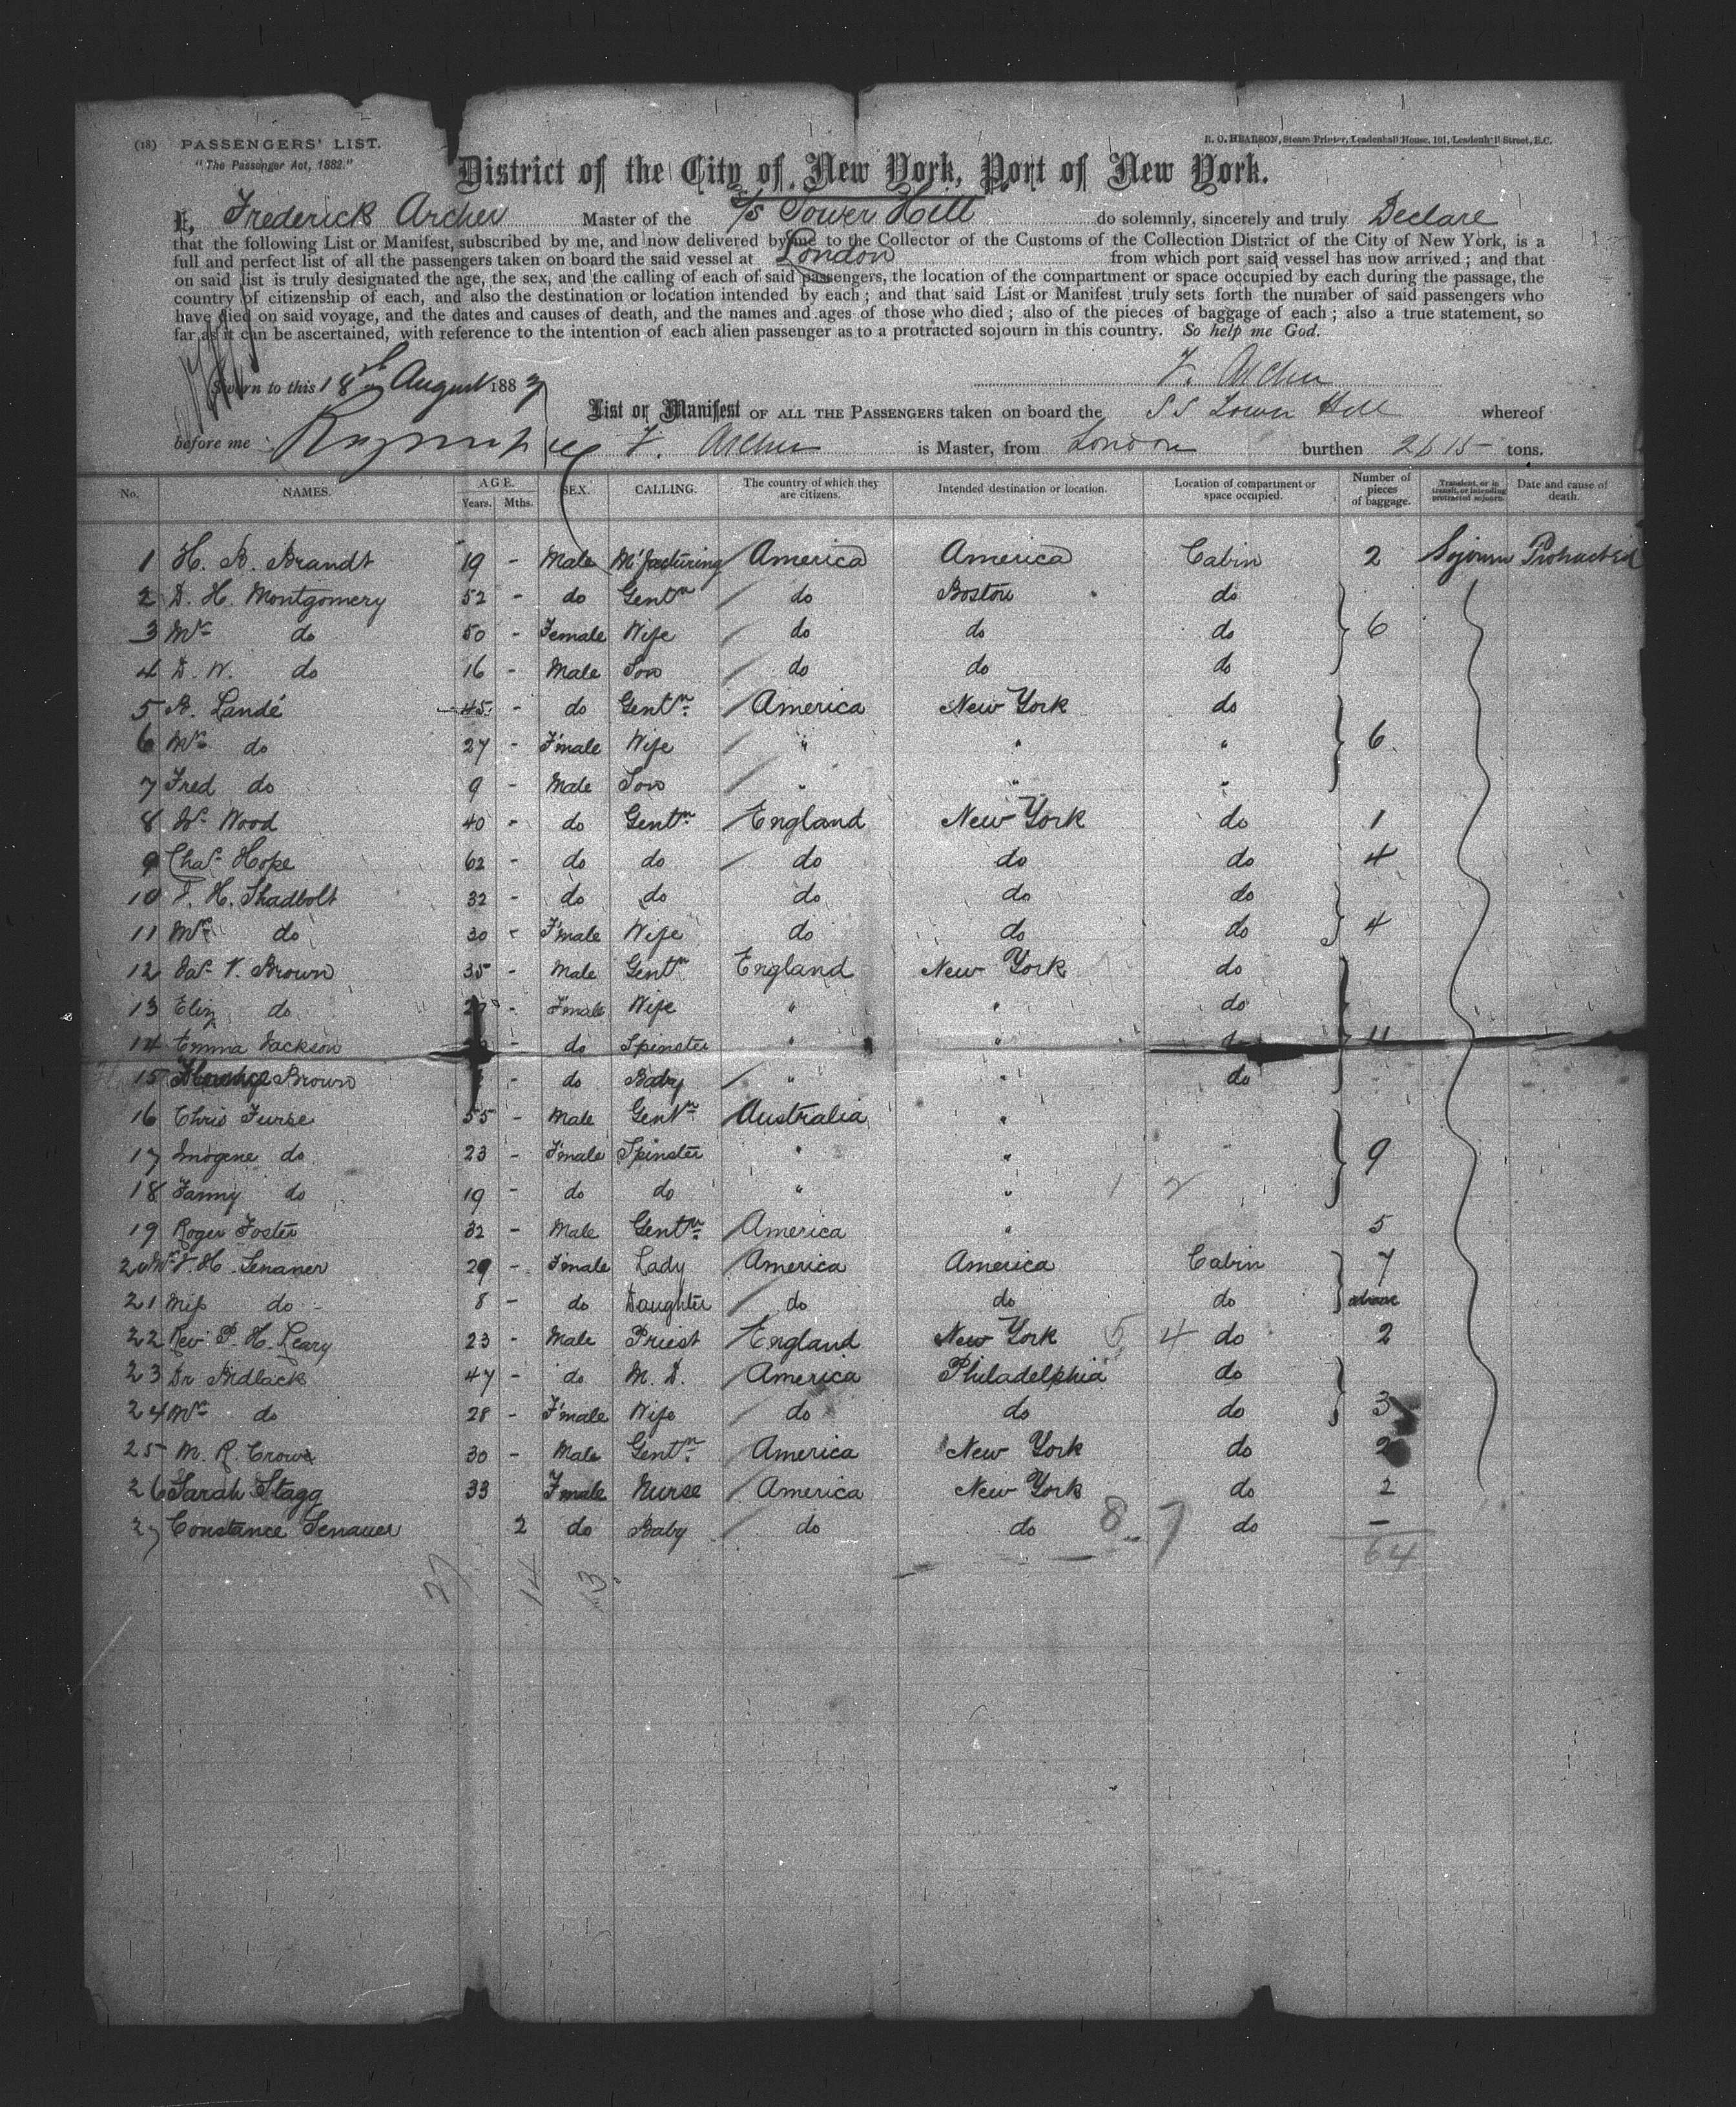 (18) PASSENGERS' LIST.
"The Passenger Act, 1882."
R. O. HEARSON, Steam Printer, Leadenhall House, 101, Leadenhall Street, E.C.
District of the City of New York, Port of New York.
I, Frederick Archer Master of the S/S Tower Hill do solemnly, sincerely and truly Declare
that the following List or Manifest, subscribed by me, and now delivered by me to the Collector of the Customs of the Collection District of the City of New York, is a
full and perfect list of all the passengers taken on board the said vessel at London from which port said vessel has now arrived; and that
on said list is truly designated the age, the sex, and the calling of each of said passengers, the location of the compartment or space occupied by each during the passage, the
country of citizenship of each, and also the destination or location intended by each; and that said List or Manifest truly sets forth the number of said passengers who
have died on said voyage, and the dates and causes of death, and the names and ages of those who died; also of the pieces of baggage of each; also a true statement, so
far as it can be ascertained, with reference to the intention of each alien passenger as to a protracted sojourn in this country. So help me God.
Sworn to this 18th August 1883 F. Archer
List or Manifest OF ALL THE PASSENGERS taken on board the SS Tower Hill whereof
before me F. Archer is Master, from London burthen 2615 tons.
No. NAMES. AGE. Years. Mths. SEX. CALLING. The country of which they are citizens. Intended destination or location. Location of compartment or space occupied. Number of pieces of baggage. Transient, or in transit, or intending protracted sojourn. Date and cause of death.
1 H. B. Brandt 19 - Male M'facturing America America Cabin 2 Sojourn Protracted
2 D. H. Montgomery 52 - do Gentn do Boston do
3 Mrs do 50 - Female Wife do do do 6
4 D. W. do 16 - Male Son do do do
5 B. Landé 45 - do Gentn America New York do
6 Mrs do 27 - F'male Wife " " " 6
7 Fred do 9 - Male Son " " "
8 Wm Wood 40 - do Gentn England New York do 1
9 Chas Hope 62 - do do do do do 4
10 F. H. Shadbolt 32 - do do do do do
11 Mrs do 30 - F'male Wife do do do 4
12 Jas V. Brown 35 - Male Gentn England New York do
13 Eliz do - F'male Wife " " do
14 Emma Jackson - do Spinster " " 11
15 Brown - do Baby " " do
16 Chris Furse 55 - Male Gentn Australia "
17 Imogene do 23 - F'male Spinster " " 9
18 Fanny do 19 - do do " " 1 2
19 Roger Foster 32 - Male Gentn America " 5
20 Mrs F. H. Senaner 29 - F'male Lady America America Cabin 7
21 Miss do 8 - do Daughter do do do above
22 Rev. P. H. Leary 23 - Male Priest England New York 5 4 do 2
23 Dr Bidlack 47 - do M. D. America Philadelphia do
24 Mrs do 28 - F'male Wife do do do 3
25 M. R. Crowe 30 - Male Gentn America New York do 2
26 Sarah Stagg 33 F'male Nurse America New York do 2
27 Constance Senauer 2 do Baby do do 8 7 do -
64
27 14 13